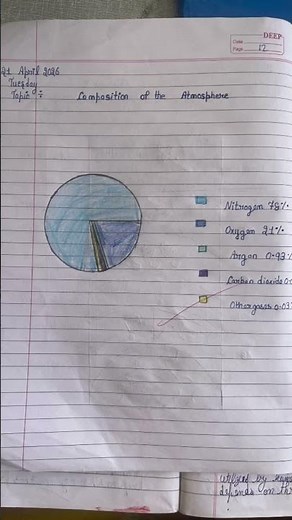 DEEP
Date
Page 12
21 April 2026
Tuesday
Topic :- Composition of the Atmosphere
Nitrogen 78%
Oxygen 21%
Argon 0.93%
Carbon dioxide 0.0
Other gases 0.03
depends on th